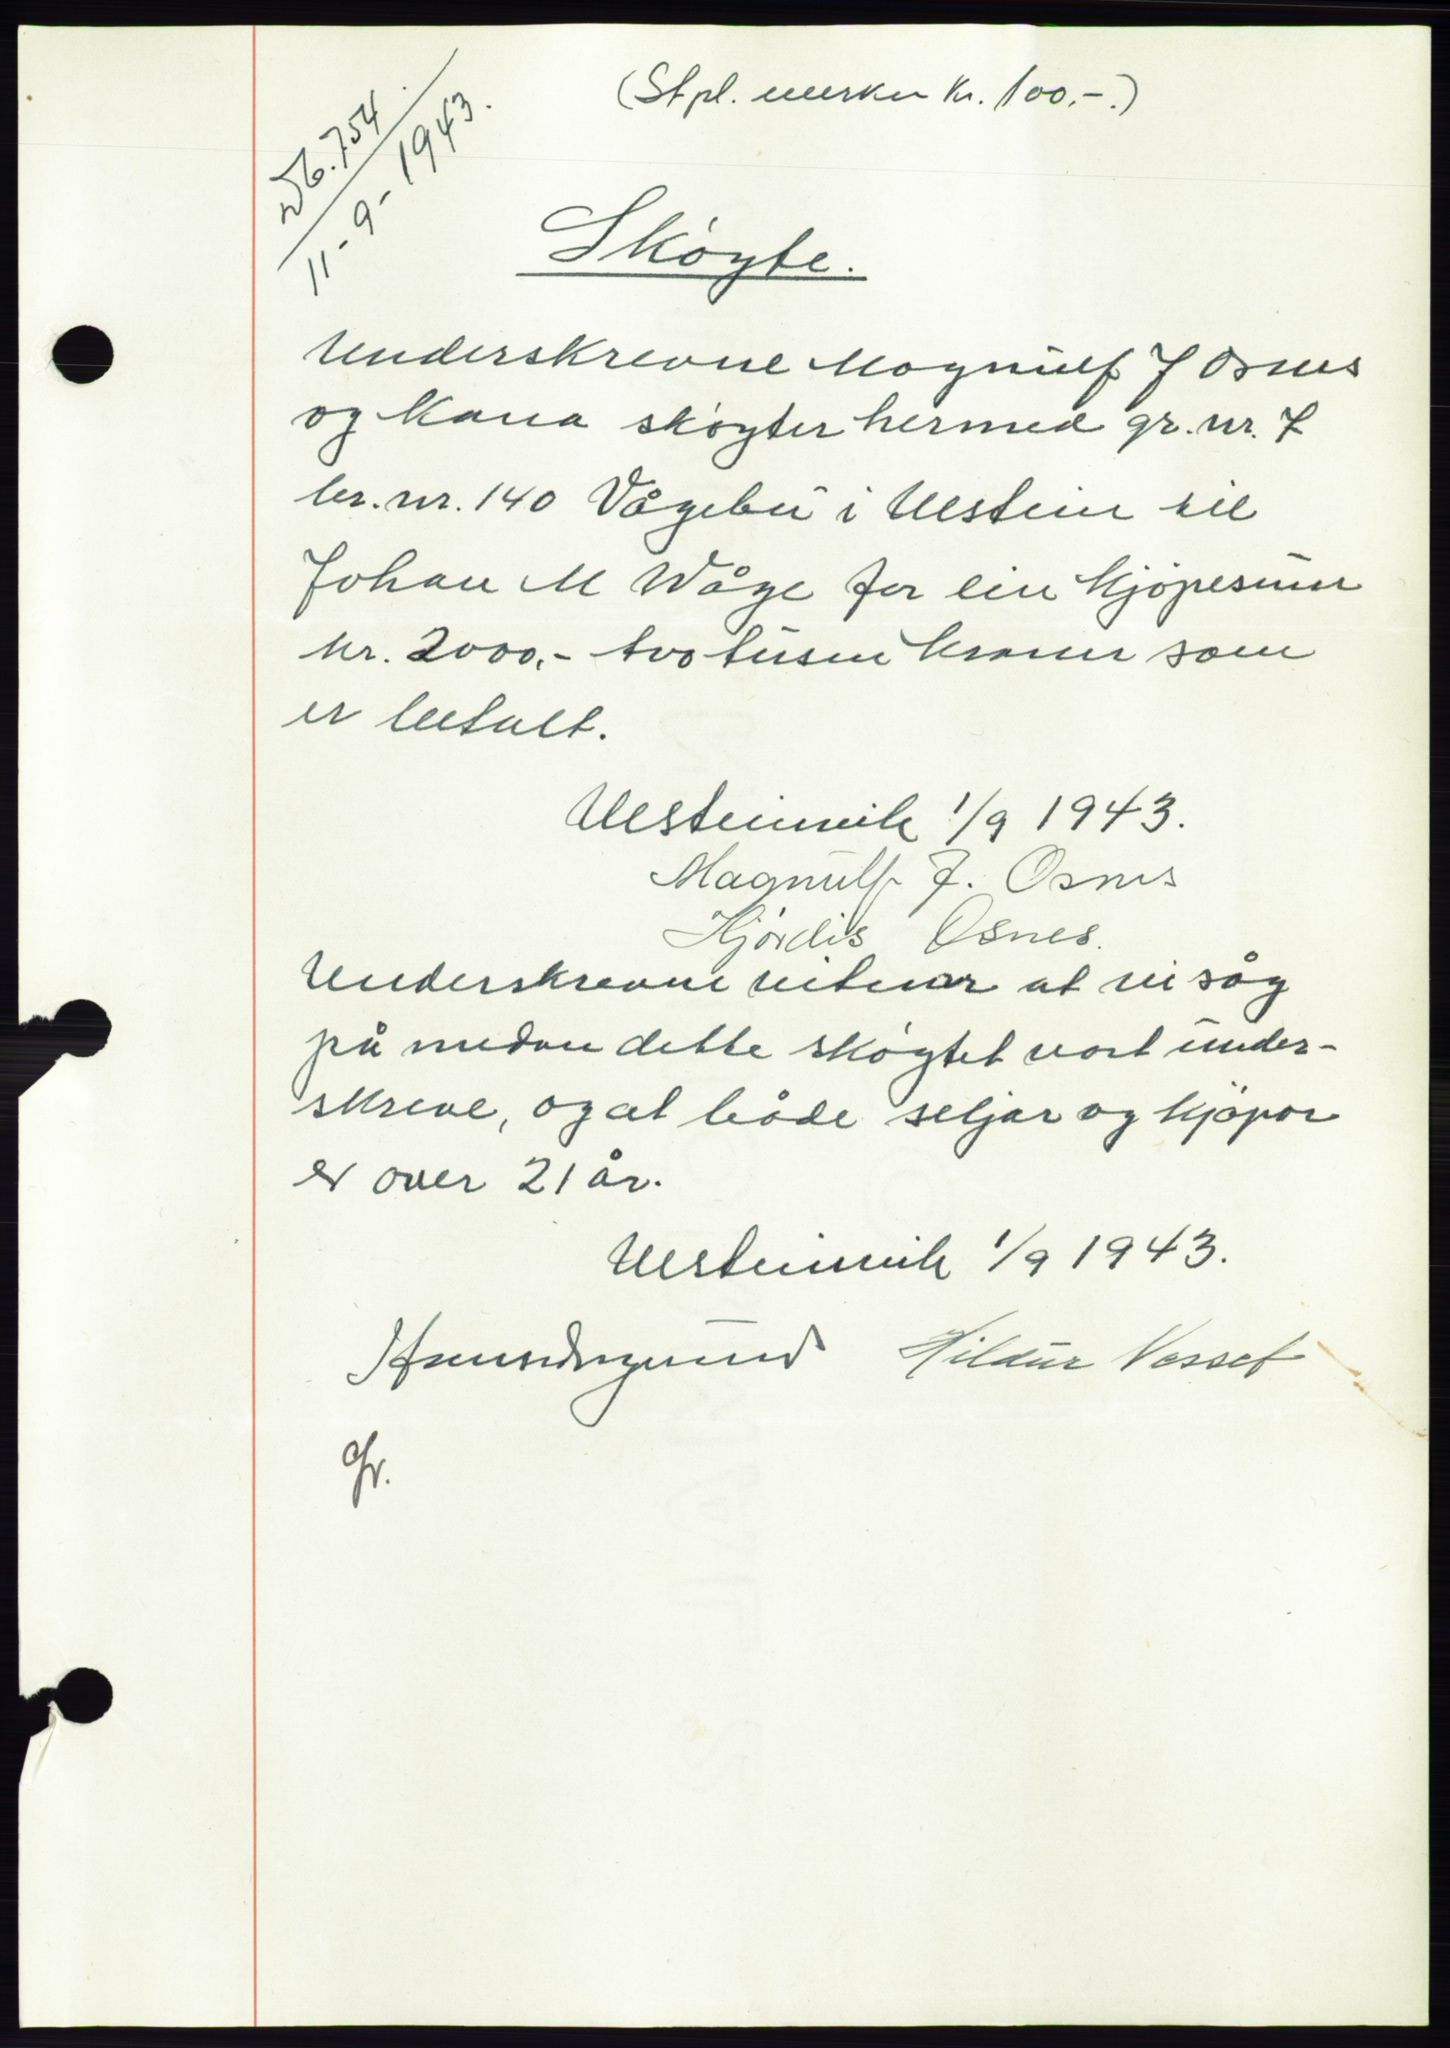 (Stpl. merker kr. 100.-.)
Db. 754
11-9-1943.
Skøyte.
Underskrevne Magnulf J Osnes
og Kona skøyter hermed gr. nr. 7
br. nr. 140 Vågebu i Ulstein til
Johan M Våge for ein kjøpesum
kr. 2000,- tvo tusen kroner som
er betalt.
Ulsteinvik 1/9 1943.
Magnulf J. Osnes
Hjördis Osnes.
Underskrevne vitnar at vi såg
på medan dette skøytet vart under-
skreve, og at både seljar og kjøpar
er over 21 år.
Ulsteinvik 1/9 1943.
Hildur Nesset